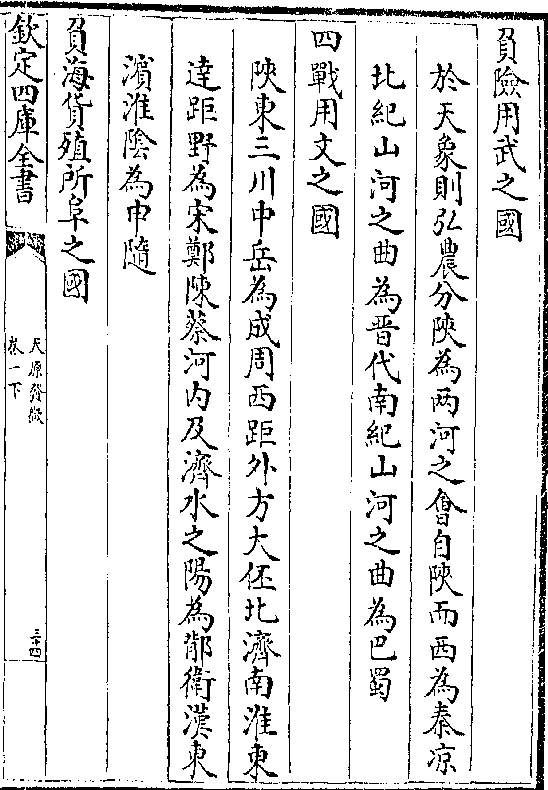 負險用武之國
於天象則弘農分陜為两河之㑹自陜而西為秦凉
北紀山河之曲為晉代南紀山河之曲為巴蜀
四戰用文之國
陜東三川中岳為成周西距外方大伾北濟南淮東
達距野為宋鄭陳蔡河内及濟水之陽為鄁衛漢東
濵淮隂為申隨
負海貨殖所阜之國
欽定四庫全書
天原發微
卷一下
三十四